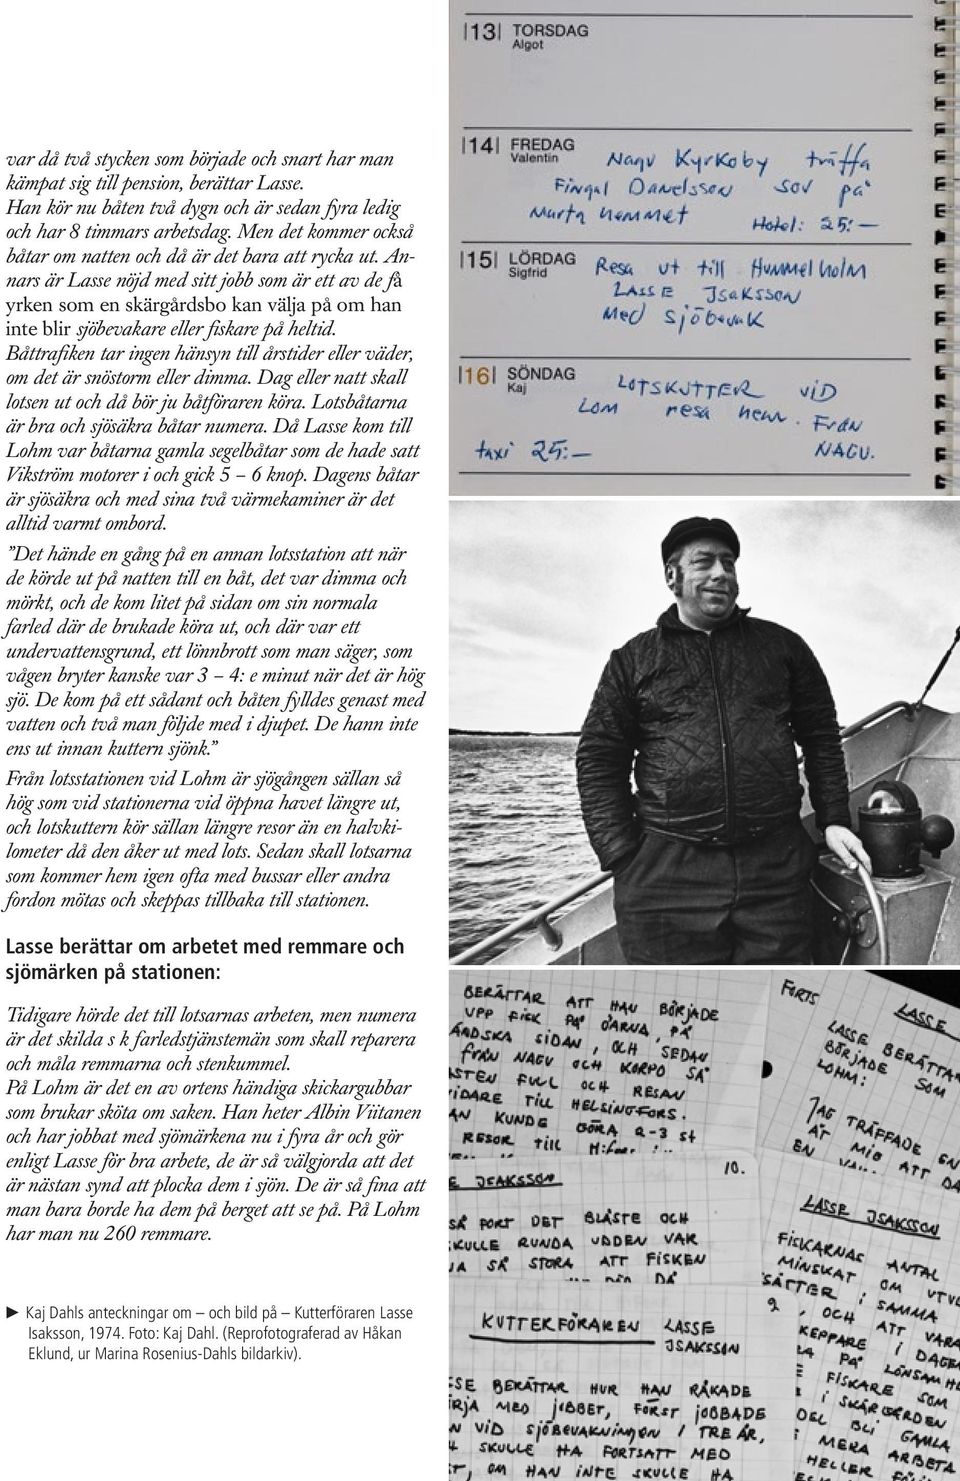 var då två stycken som började och snart har man
kämpat sig till pension, berättar Lasse.
Han kör nu båten två dygn och är sedan fyra ledig
och har 8 timmars arbetsdag. Men det kommer också
båtar om natten och då är det bara att rycka ut. An-
nars är Lasse nöjd med sitt jobb som är ett av de få
yrken som en skärgårdsbo kan välja på om han
inte blir sjöbevakare eller fiskare på heltid.
Båttrafiken tar ingen hänsyn till årstider eller väder,
om det är snöstorm eller dimma. Dag eller natt skall
lotsen ut och då bör ju båtföraren köra. Lotsbåtarna
är bra och sjösäkra båtar numera. Då Lasse kom till
Lohm var båtarna gamla segelbåtar som de hade satt
Vikström motorer i och gick 5 – 6 knop. Dagens båtar
är sjösäkra och med sina två värmekaminer är det
alltid varmt ombord.
”Det hände en gång på en annan lotsstation att när
de körde ut på natten till en båt, det var dimma och
mörkt, och de kom litet på sidan om sin normala
farled där de brukade köra ut, och där var ett
undervattensgrund, ett lönnbrott som man säger, som
vågen bryter kanske var 3 – 4: e minut när det är hög
sjö. De kom på ett sådant och båten fylldes genast med
vatten och två man följde med i djupet. De hann inte
ens ut innan kuttern sjönk.”
Från lotsstationen vid Lohm är sjögången sällan så
hög som vid stationerna vid öppna havet längre ut,
och lotskuttern kör sällan längre resor än en halvki-
lometer då den åker ut med lots. Sedan skall lotsarna
som kommer hem igen ofta med bussar eller andra
fordon mötas och skeppas tillbaka till stationen.
Lasse berättar om arbetet med remmare och
sjömärken på stationen:
Tidigare hörde det till lotsarnas arbeten, men numera
är det skilda s k farledstjänstemän som skall reparera
och måla remmarna och stenkummel.
På Lohm är det en av ortens händiga skickargubbar
som brukar sköta om saken. Han heter Albin Viitanen
och har jobbat med sjömärkena nu i fyra år och gör
enligt Lasse för bra arbete, de är så välgjorda att det
är nästan synd att plocka dem i sjön. De är så fina att
man bara borde ha dem på berget att se på. På Lohm
har man nu 260 remmare.
► Kaj Dahls anteckningar om – och bild på – Kutterföraren Lasse
Isaksson, 1974. Foto: Kaj Dahl. (Reprofotograferad av Håkan
Eklund, ur Marina Rosenius-Dahls bildarkiv).
|13| TORSDAG
Algot
|14| FREDAG
Valentin
Nagu Kyrkoby träffa
Fingal Danelsson sov på
Marta hemmet Hotel: 25:—
|15| LÖRDAG
Sigfrid
Resa ut till Hummelholm
LASSE Isaksson
Med sjöbevak
|16| SÖNDAG
Kaj
LOTSKUTTER VID
LOM resa hem. Från
taxi 25:— NAGU.
BERÄTTAR ATT HAN BÖRJADE
UPP FISK PÅ ÖARNA, PÅ
ÅNDSKA SIDAN, OCH SEDAN
FRÅN NAGU OCH KORPO SÅ
ASTEN FULL OCH RESAN
VIDARE TILL HELSINGFORS.
AN KUNDE GÖRA 2-3 st
RESOR TILL H:fors
10.
E ISAKSSON
SÅ FORT DET BLÅSTE OCH
SKULLE RUNDA UDDEN VAR
SÅ STORA ATT FISKEN
DÅ
2
KUTTERFÖRAREN LASSE
ISAKSSON
SSE BERÄTTAR HUR HAN RÅKADE
RJA MED JOBBET, FÖRST JOBBADE
N VID SJÖBEVAKNINGEN I TRE ÅR,
SKULLE HA FORTSATT MED
T, OM HAN INTE SKULLE HA
FORTS LASSE
LASSE BERÄTTA
BÖRJADE SOM
LOHM:
JAG TRÄFFADE EN
ÅT MIG ATT DÅ
EN
LASSE ISAKSSON
FISKARNAS ANTAL
MINSKAT OM UTVE
SÄTTER I SAMMA
OCH ATT VARA
KEPPARE I DAGEN
RA PÅ LÖNSAMHE
FISKARE SOM
I SKÄRGÅRDEN
DEL BLI GAMLA
I MERA ARBETA
HELLER